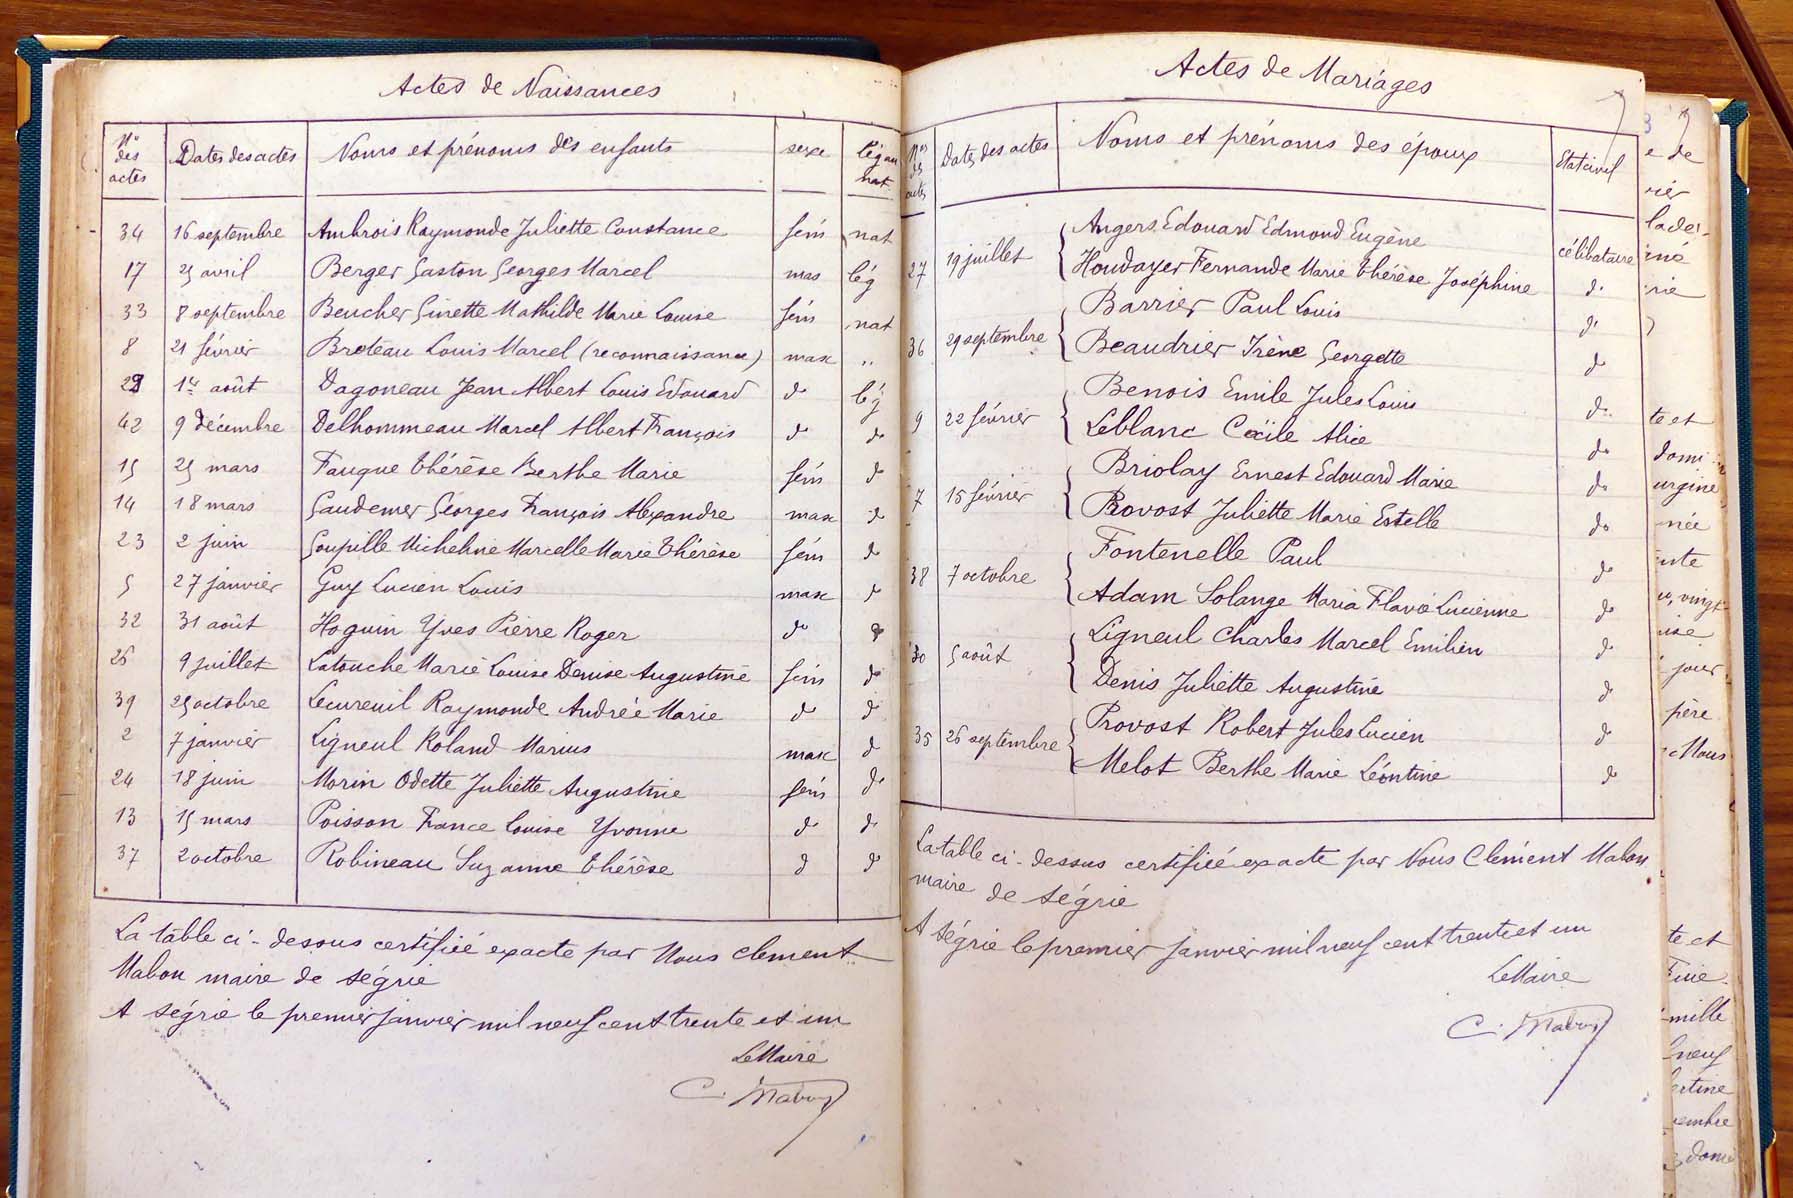 Actes de Naissances
Nos des actes Dates des actes Noms et prénoms des enfants sexe lég ou nat
34 16 septembre Ambrois Raymonde Juliette Constance fém nat
17 25 avril Berger Gaston Georges Marcel mas lég
33 8 septembre Beucher Ginette Mathilde Marie Louise fém nat
8 21 février Broteau Louis Marcel (reconnaissance) masc "
29 1er août Dagoneau Jean Albert Louis Edouard do lég
42 9 décembre Delhommeau Marcel Albert François do do
15 25 mars Fauque Thérèse Berthe Marie fém do
14 18 mars Gaudemer Georges François Alexandre masc do
23 2 juin Goupille Micheline Marcelle Marie Thérèse fém do
5 27 janvier Guy Lucien Louis masc do
32 31 août Hoguin Yves Pierre Roger do do
26 9 juillet Latouche Marie Louise Denise Augustine fém do
39 25 octobre Lecureuil Raymonde Andrée Marie do do
2 7 janvier Ligneul Roland Marius masc do
24 18 juin Morin Odette Juliette Augustine fém do
13 15 mars Poisson France Louise Yvonne do do
37 2 octobre Robineau Suzanne Thérèse do do
La table ci-dessus certifiée exacte par Nous Clement
Mabon maire de Ségrie
A Ségrie le premier janvier mil neuf cent trente et un
Le Maire
C. Mabon
Actes de Mariages
Nos des actes Dates des actes Noms et prénoms des époux Etat civil
27 19 juillet Angers Edouard Edmond Eugène célibataire
Houdayer Fernande Marie Thérèse Joséphine do
36 29 septembre Barrier Paul Louis do
Beaudrier Irène Georgette do
9 22 février Benois Emile Jules Louis do
Leblanc Cécile Alice do
7 15 février Briolay Ernest Edouard Marie do
Provost Juliette Marie Estelle do
38 7 octobre Fontenelle Paul do
Adam Solange Maria Flavie Lucienne do
30 5 août Ligneul Charles Marcel Emilien do
Denis Juliette Augustine do
35 26 septembre Provost Robert Jules Lucien do
Melot Berthe Marie Léontine do
La table ci-dessus certifiée exacte par Nous Clément Mabon
maire de Ségrie
A Ségrie le premier janvier mil neuf cent trente et un
Le Maire
C. Mabon